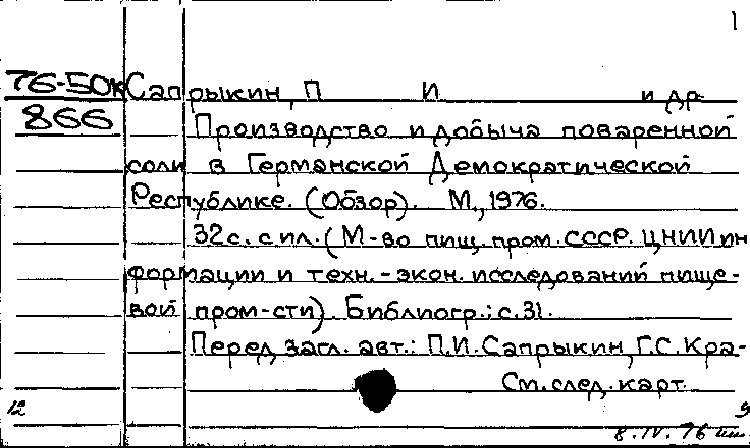 1
76-50к Сапрыкин, П И и др
866 Производство и добыча поваренной
соли в Германской Демократической
Республике. (Обзор). М., 1976.
32с. с ил. (М-во пищ. пром. СССР. ЦНИИ ин
формации и техн.-экон. исследований пище-
вой пром-сти). Библиогр.: с. 31.
Перед загл. авт.: П.И. Сапрыкин, Г.С. Кра-
См. след. карт
12
8.IV.76